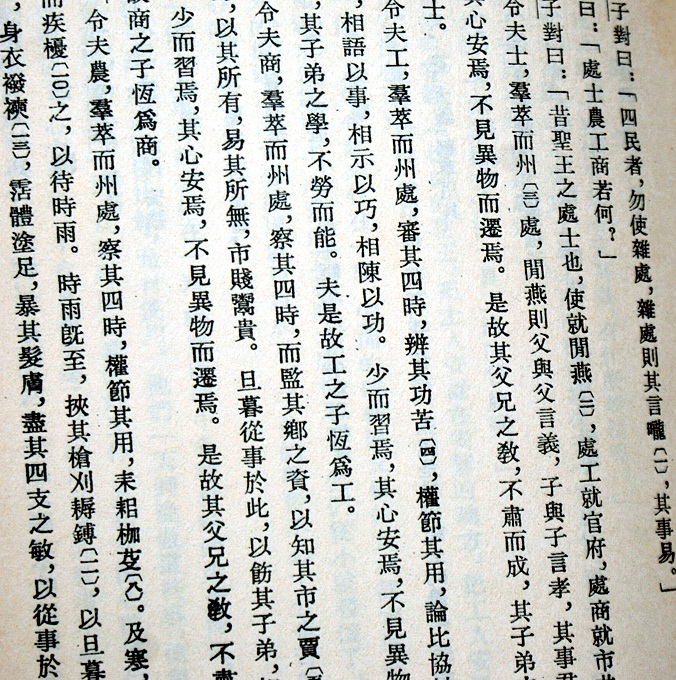 子對曰：「四民者，勿使雜處，雜處則其言哤〔一〕，其事易。」
曰：「處士農工商若何？」
子對曰：「昔聖王之處士也，使就閒燕〔二〕，處工就官府，處商就市井
令夫士，羣萃而州〔三〕處，閒燕則父與父言義，子與子言孝，其事君
其心安焉，不見異物而遷焉。是故其父兄之敎，不肅而成，其子弟
士。
令夫工，羣萃而州處，審其四時，辨其功苦〔四〕，權節其用，論比協
，相語以事，相示以巧，相陳以功。少而習焉，其心安焉，不見異物
，其子弟之學，不勞而能。夫是故工之子恆爲工。
令夫商，羣萃而州處，察其四時，而監其鄕之資，以知其市之賈
，以其所有，易其所無，市賤鬻貴。旦暮從事於此，以飭其子弟，
少而習焉，其心安焉，不見異物而遷焉。是故其父兄之敎，不肅
故商之子恆爲商。
令夫農，羣萃而州處，察其四時，權節其用，耒耜枷芟〔八〕。及寒，
而疾耰〔一〇〕之，以待時雨。時雨旣至，挾其槍刈耨鎛〔一一〕，以旦暮
，身衣襏襫〔一三〕，霑體塗足，暴其髮膚，盡其四支之敏，以從事於